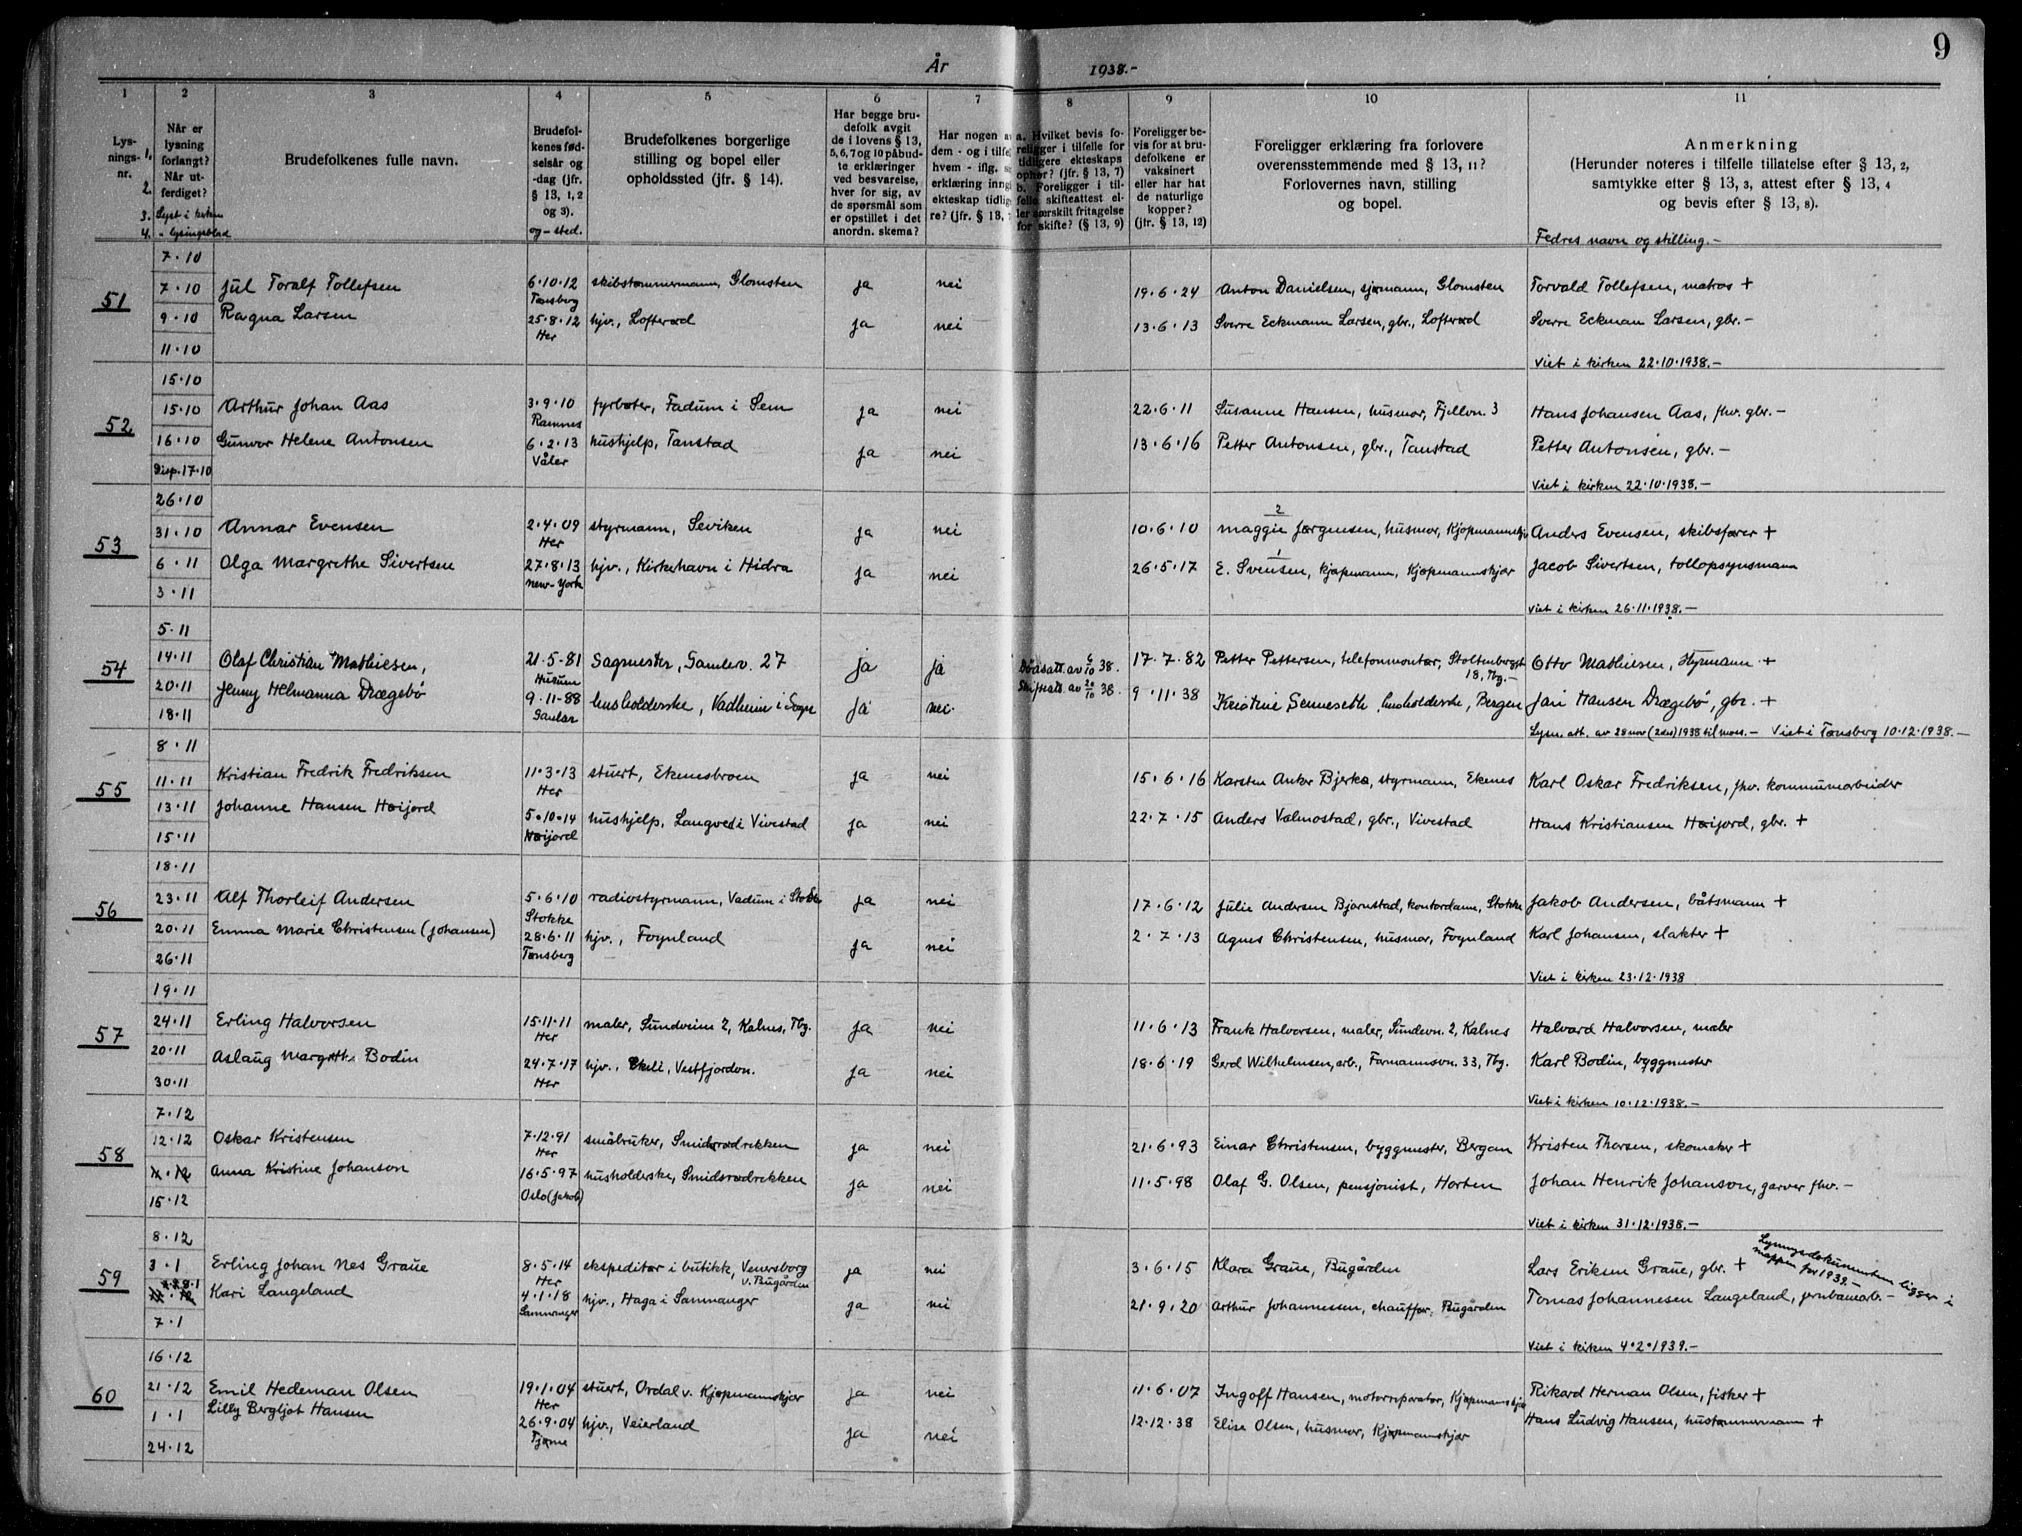 År 1938.-
9
1 2 3 4 5 6 7 8 9 10 11
Lys-
nings-
nr.
1.
2.
3.
4.
Når er
lysning
forlangt?
Når ut-
ferdiget?
Lyst i kirken
" lysingsblad
Brudefolkenes fulle navn.
Brudefol-
kenes fød-
selsår og
-dag (jfr.
§ 13, 1, 2
og 3).
og - sted.
Brudefolkenes borgerlige
stilling og bopel eller
opholdssted (jfr. § 14).
Har begge bru-
defolk avgit
de i lovens § 13,
5, 6, 7 og 10 påbud-
te erklæringer
ved besvarelse,
hver for sig, av
de spørsmål som
er opstillet i det
anordn. skema?
Har nogen a
dem - og i tilfel
hvem - iflg.
erklæring inng
ekteskap tidlig
re? (jfr. § 13,
a. Hvilket bevis fo-
religger i tilfelle for
tidligere ekteskaps
ophør? (jfr. § 13, 7)
b. Foreligger i til-
felle skifteattest el-
ler særskilt fritagelse
for skifte? (§ 13, 9)
Foreligger be-
vis for at bru-
defolkene er
vaksinert
eller har hat
de naturlige
kopper?
(jfr. § 13, 12)
Foreligger erklæring fra forlovere
overensstemmende med § 13, 11?
Forlovernes navn, stilling
og bopel.
Anmerkning
(Herunder noteres i tilfelle tillatelse efter § 13, 2,
samtykke efter § 13, 3, attest efter § 13, 4
og bevis efter § 13, 8).
Fedres navn og stilling.-
51
7·10
7·10
9·10
11·10
Jul Toralf Tollefsen 6·10·12 skibstømmermann, Glomsten ja nei 19·6·24 Anton Danielsen, sjømann, Glomsten Torvald Tollefsen, matros +
Tønsberg
Ragna Larsen 25·8·12 hjv., Lofterød ja nei 13·6·13 Sverre Eckmann Larsen, gbr., Lofterød Sverre Eckman Larsen, gbr.-
Her
Viet i kirken 22·10·1938.-
52
15·10
15·10
16·10
Disp. 17·10
Arthur Johan Aas 3·9·10 fyrbøter, Fadum i Sem ja nei 22·6·11 Susanne Hansen, husmor, Fjellvn. 3 Hans Johansen Aas, fhv. gbr.-
Ramnes
Gunvor Helene Antonsen 6·2·13 hushjelp, Tanstad ja nei 13·6·16 Petter Antonsen, gbr., Tanstad Petter Antonsen, gbr.-
Våler
Viet i kirken 22·10·1938.-
53
26·10
31·10
6·11
3·11
Annar Evensen 2·4·09 styrmann, Seviken ja nei 10·6·10 2 Maggie Jørgensen, husmor, Anders Evensen, skibsfører +
Her
Olga Margrethe Sivertsen 27·8·13 hjv., Kirkehavn i Hidra ja nei 26·5·17 1 E. Svensen, kjøpmann, Kjøpmannskjær Jacob Sivertsen, tollopsynsmann
New-York
Viet i kirken 26·11·1938.-
54
5·11
14·11
20·11
18·11
Olaf Christian Mathiesen, 21·5-81 Sagmester, Gamlev. 27 ja ja Dødsatt. av 6/10 38. 17·7·82 Petter Pettersen, telefonmontør, Stoltenbergst Otto Mathiesen, styrmann +
18, Tbg.-
Hurum
Jenny Helmanna Drægebø 9·11-88 husholderske, Vadheim i Sogn ja nei. Skifteatt. av 20/10 38. 9·11·38 Kristine Senneseth, husholderske, Bergen Jan Hansen Drægebø, gbr. +
Gaular
Lysn. att. av 28 nov (2des) 1938 til mors.- Viet i Tønsberg 10·12·1938.-
55
8·11
11·11
13·11
15·11
Kristian Fredrik Fredriksen 11·3·13 stuert, Ekenesbroen ja nei 15·6·16 Karsten Anker Bjerkø, styrmann, Ekenes Karl Oskar Fredriksen, fhv. kommunearbeider
Her
Johanne Hansen Høijord 5·10·14 hushjelp, Langved i Vivestad ja nei 22·7·15 Anders Valmostad, gbr., Vivestad Hans Kristiansen Høijord, gbr. +
Høijord
56
18·11
23·11
20·11
26·11
Alf Thorleif Andersen 5·6·10 radiostyrmann, Vadum i Stokke ja nei 17·6·12 Julie Andersen Bjørnstad, kontordame, Stokke Jakob Andersen, båtsmann +
Stokke
Emma Marie Christensen (Johansen) 28·6·11 hjv., Foynland ja nei 2·7·13 Agnes Christensen, husmor, Foynland Karl Johansen, slakter +
Tønsberg
Viet i kirken 23·12·1938
57
19·11
24·11
20·11
30·11
Erling Halvorsen 15·11·11 maler, Sundveien 2, Kalnes, Tbg. ja nei 11·6·13 Frank Halvorsen, maler, Sundevn. 2, Kalnes Halvard Halvorsen, maler
Her
Aslaug Margrethe Bodin 24·7·17 hjv., Ekeli, Vestfjordvn. ja nei 18·6·19 Gerd Wilhelmsen, arb., Farmannsvn. 33, Tbg. Karl Bodin, byggmester
Her
Viet i kirken 10·12·1938.-
58
7·12
12·12
11·12
15·12
Oskar Kristensen 7·12·91 småbruker, Smidsrødrekken ja nei 21·6·93 Einar Christensen, byggmester, Bergan Kristen Thorsen, skomaker +
Her
Anna Kristine Johanson 16·5·97 husholderske, Smidsrødrekken ja nei 11·5·98 Olaf G. Olsen, pensjonist, Horten Johan Henrik Johanson, garver fhv.-
Oslo (Jakob)
Viet i kirken 31·12·1938.-
59
8·12
3·1
7·1
Erling Johan Nes Graue 8·5·14 ekspeditør i butikk, Venersborg ja nei 3·6·15 Klara Graue, Bugården Lars Eriksen Graue, gbr. +
v. Bugården
Her
Lysningsdokumenten ligger i
mappen for 1939.-
Kari Langeland 4·1·18 hjv., Haga i Samnanger ja nei 21·9·20 Arthur Johannessen, chauffør, Bugården Tomas Johannesen Langeland, jernbanearb.-
Samnanger
Viet i kirken 4·2·1939.-
60
16·12
21·12
1·1
24·12
Emil Hedeman Olsen 19·1·04 stuert, Ordal v. Kjøpmannskjær ja nei 11·6·07 Ingolf Hansen, motorreparatør, Kjøpmannskjær Rikard Herman Olsen, fisker +
Her
Lilly Bergljot Hansen 26·9·04 hjv., Veierland ja nei 12·12·38 Elise Olsen, husmor, Kjøpmannskjær Hans Ludvig Hansen, hustømmermann +
Tjøme